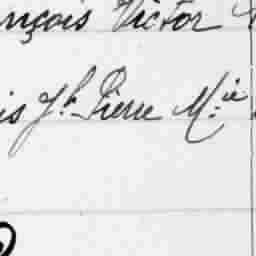 nçois Victor
is Jh. Pierre M.ie